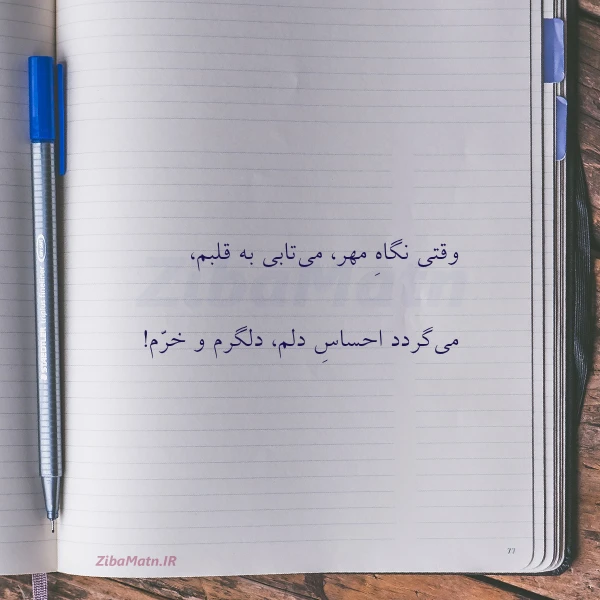 وقتی نگاهِ مهر، می‌تابی به قلبم،
می‌گردد احساسِ دلم، دلگرم و خرّم!
ZibaMatn.IR
ZibaMatn
77